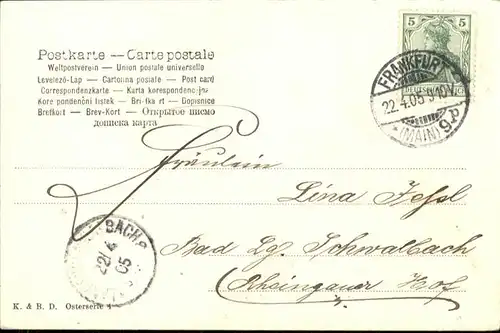 Postkarte — Carte postale
Weltpostverein — Union postale universelle
Levelező-Lap — Cartolina postale — Post card
Correspondenzkarte — Karta korespondencyjna
Korespondenční lístek — Brífkaŕt — Dopisnice
Brefkort — Brev-Kort — Открытое письмо
дописна карта
5 5
DEUTSCHES REICH
FRANKFURT
22.4.05 9-10V.
(MAIN) 9
Fräulein
Lina
Bad Lg. Schwalbach
Rheingauer Hof
BACH
22 4
05
K. & B. D. Osterserie 4